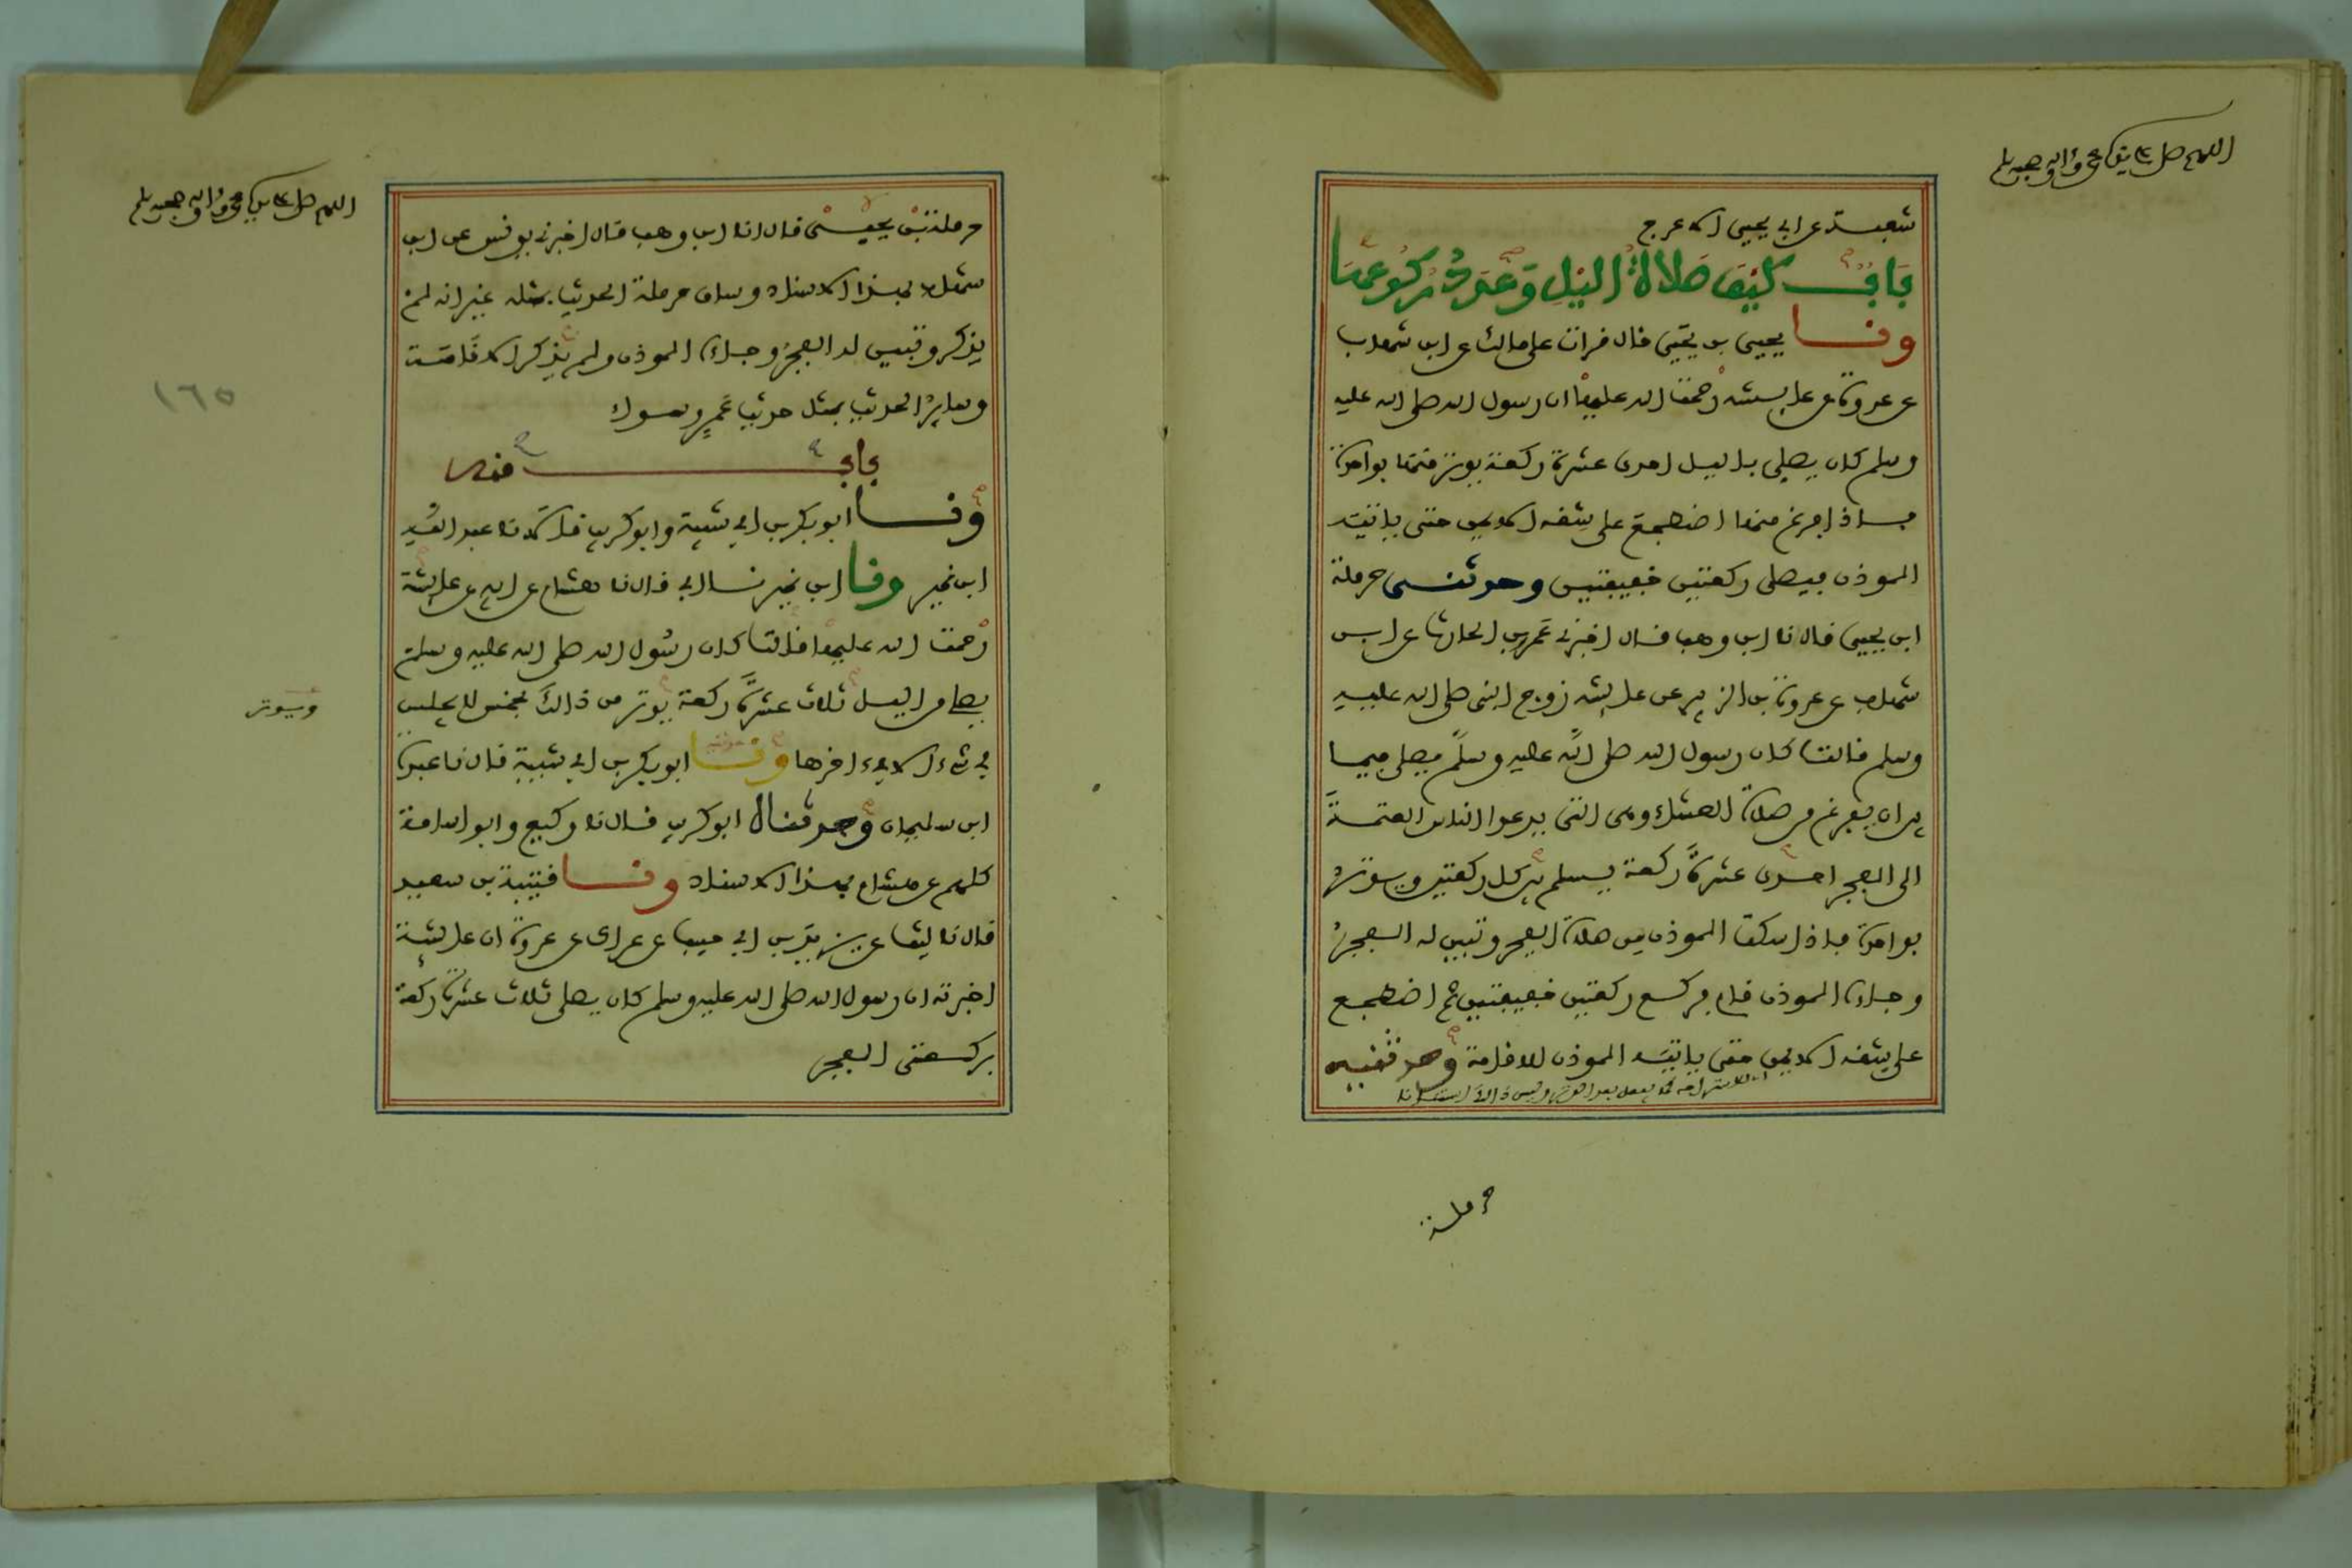 اللهم صل على سيدنا محمد وآله وصحبه وسلم
شعبة عن ابي يحيى الاعرج
باب كيف صلاة الليل وعدد ركوعها
ونا يحيى بن يحيى قال قرات على مالك عن ابن شهاب
عن عروة عن عايشة رحمت الله عليها ان رسول الله صلى الله عليه
وسلم كان يصلي بالليل احدى عشرة ركعة يوتر منها بواحدة
فاذا فرغ منها اضطجع على شقه الايمن حتى ياتيه
الموذن فيصلى ركعتين خفيفتين وحدثنى حرملة
ابن يحيى قال نا ابن وهب قال اخبرني عمرو بن الحارث عن ابن
شهاب عن عروة بن الزبير عن عايشة زوج النبى صلى الله عليه
وسلم قالت كان رسول الله صلى الله عليه وسلم يصلى فيما
بين ان يفرغ من صلاة العشاء وهى التى يدعوا الناس العتمة
الى الفجر احدى عشرة ركعة يسلم بين كل ركعتين ويوتر
بواحدة فاذا سكت الموذن من صلاة الفجر وتبين له الفجر
وجاءه الموذن قام فركع ركعتين خفيفتين ثم اضطجع
على شقه الايمن حتى ياتيه الموذن للاقامة وحدثنيه
حرملة
اللهم صل على سيدنا محمد وآله وصحبه وسلم
حرملة بن يحيى قال انا ابن وهب قال اخبرني يونس عن ابن
شهاب بهذا الاسناد وساق حرملة الحديث بمثله غير انه لم
يذكر وتبين له الفجر وجاءه الموذن ولم يذكر الاقامة
وساير الحديث بمثل حديث عمرو سواء
١٦٥
باب منه
ونا ابو بكر بن ابي شيبة وابو كريب قالا نا عبد الله
ابن نمير ونا ابن نمير نا ابي قال نا هشام عن ابيه عن عايشة
رحمت الله عليها قالت كان رسول الله صلى الله عليه وسلم
يصلى من الليل ثلاث عشرة ركعة يوتر من ذالك بخمس لا يجلس
ويوتر
في شيء الا في اخرها ونا ابو بكر بن ابي شيبة قال نا عبدة
ابن سليمان وحدثناه ابو كريب قال نا وكيع وابو اسامة
كلهم عن هشام بهذا الاسناد ونا قتيبة بن سعيد
قال نا ليث عن يزيد بن ابي حبيب عن عراك عن عروة ان عايشة
اخبرته ان رسول الله صلى الله عليه وسلم كان يصلى ثلاث عشرة ركعة
بركعتى الفجر